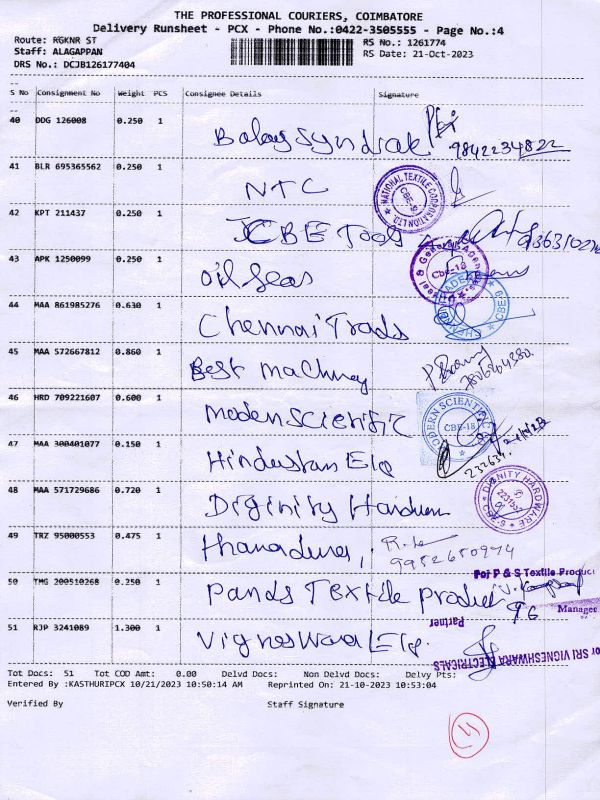 THE PROFESSIONAL COURIERS, COIMBATORE
Delivery Runsheet - PCX - Phone No.:0422-3505555 - Page No.:4
Route: RGKNR ST
RS No.: 1261774
Staff: ALAGAPPAN
RS Date: 21-Oct-2023
DRS No.: DCJB126177404
S No Consignment No Weight PCS Consignee Details Signature
40 DDG 126008 0.250 1
Balaji Syndicate 9842234822
41 BLR 695365562 0.250 1
NTC NATIONAL TEXTILE CORPORATION LTD CBE-9
42 KPT 211437 0.250 1
CBE Tools
43 APK 1250099 0.250 1
Oil Seas CBE-18
44 MAA 861985276 0.630 1
Chennai Trads CBE-9
45 MAA 572667812 0.860 1
Best Machney
46 HRD 709221607 0.600 1
Modern Scientific MODERN SCIENTIFIC CBE-18
47 MAA 300401077 0.150 1
Hindustan Ele 232634
48 MAA 571729686 0.720 1
Diginity Hardware DIGNITY HARDWARE CBE-9
49 TRZ 95000553 0.475 1
R.
9952650974
50 TMG 200510268 0.250 1
Pands Textile product
For P & S Textile Product
Manager
Partner
51 RJP 3241089 1.300 1
Vigneswara Ele.
For SRI VIGNESHWARA ELECTRICALS
Tot Docs: 51 Tot COD Amt: 0.00 Delvd Docs: Non Delvd Docs: Delvy Pts:
Entered By :KASTHURIPCX 10/21/2023 10:50:14 AM Reprinted On: 21-10-2023 10:53:04
Verified By Staff Signature